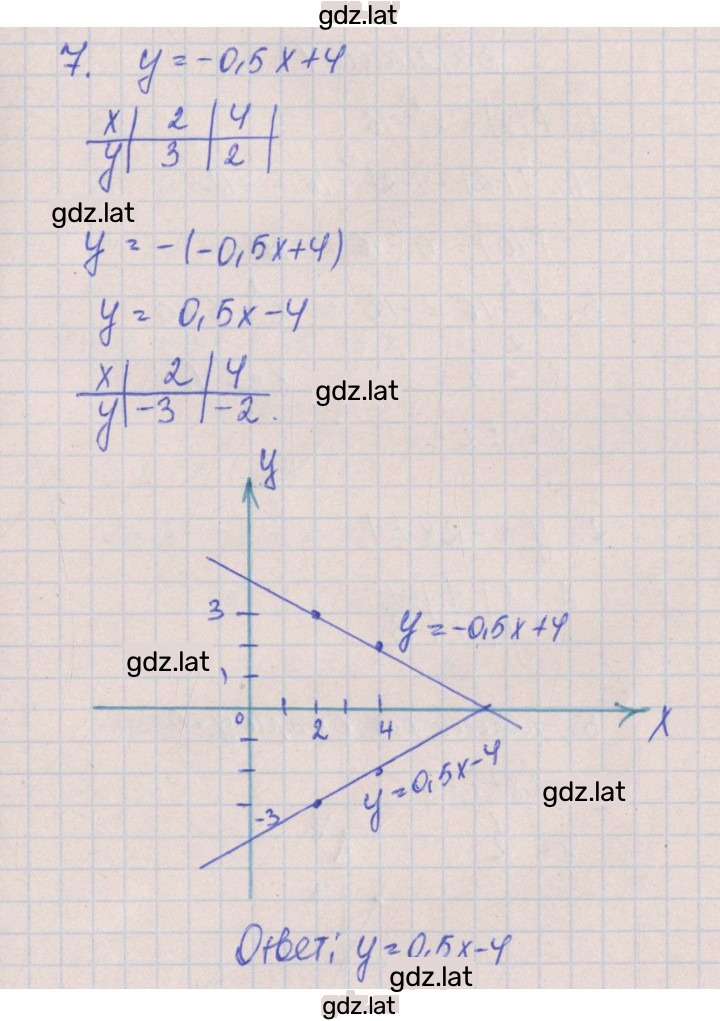 gdz.lat
7. y = -0,5x+4
x | 2 | 4
y | 3 | 2
gdz.lat
y = -(-0,5x+4)
y = 0,5x-4
x | 2 | 4
gdz.lat
y | -3 | -2.
y
3
y = -0,5x+4
gdz.lat
0
2
4
x
y = 0,5x-4
gdz.lat
-3
Ответ: y = 0,5x-4
gdz.lat
gdz.lat